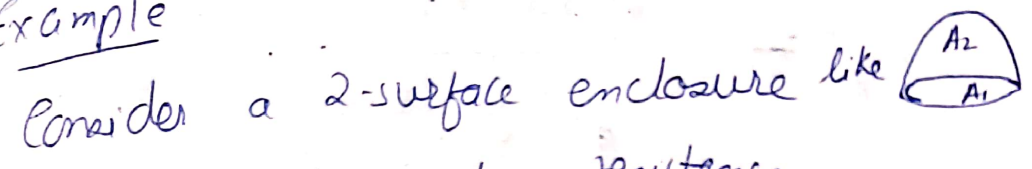 Example
Consider a 2-surface enclosure like
A2
A1